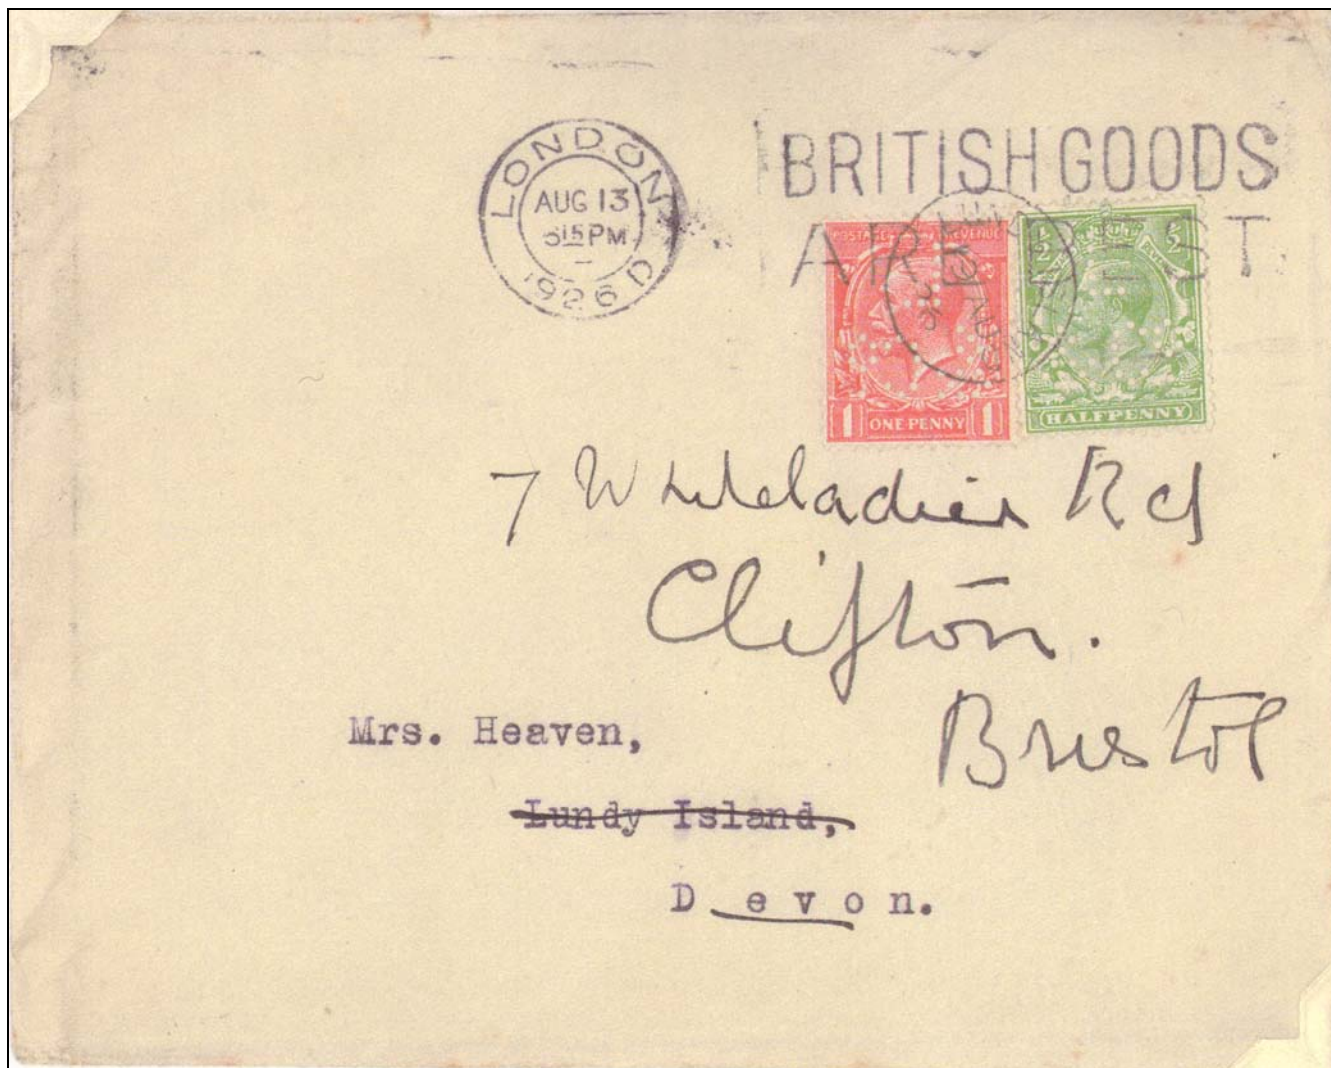 LONDON
AUG 13
1926 D
BRITISH GOODS
ARE BEST
POSTAGE REVENUE
1 ONE PENNY 1
½ ½
HALFPENNY
7 Whiteladies Rd
Clifton.
Bristol
Mrs. Heaven,
Lundy Island,
Devon.